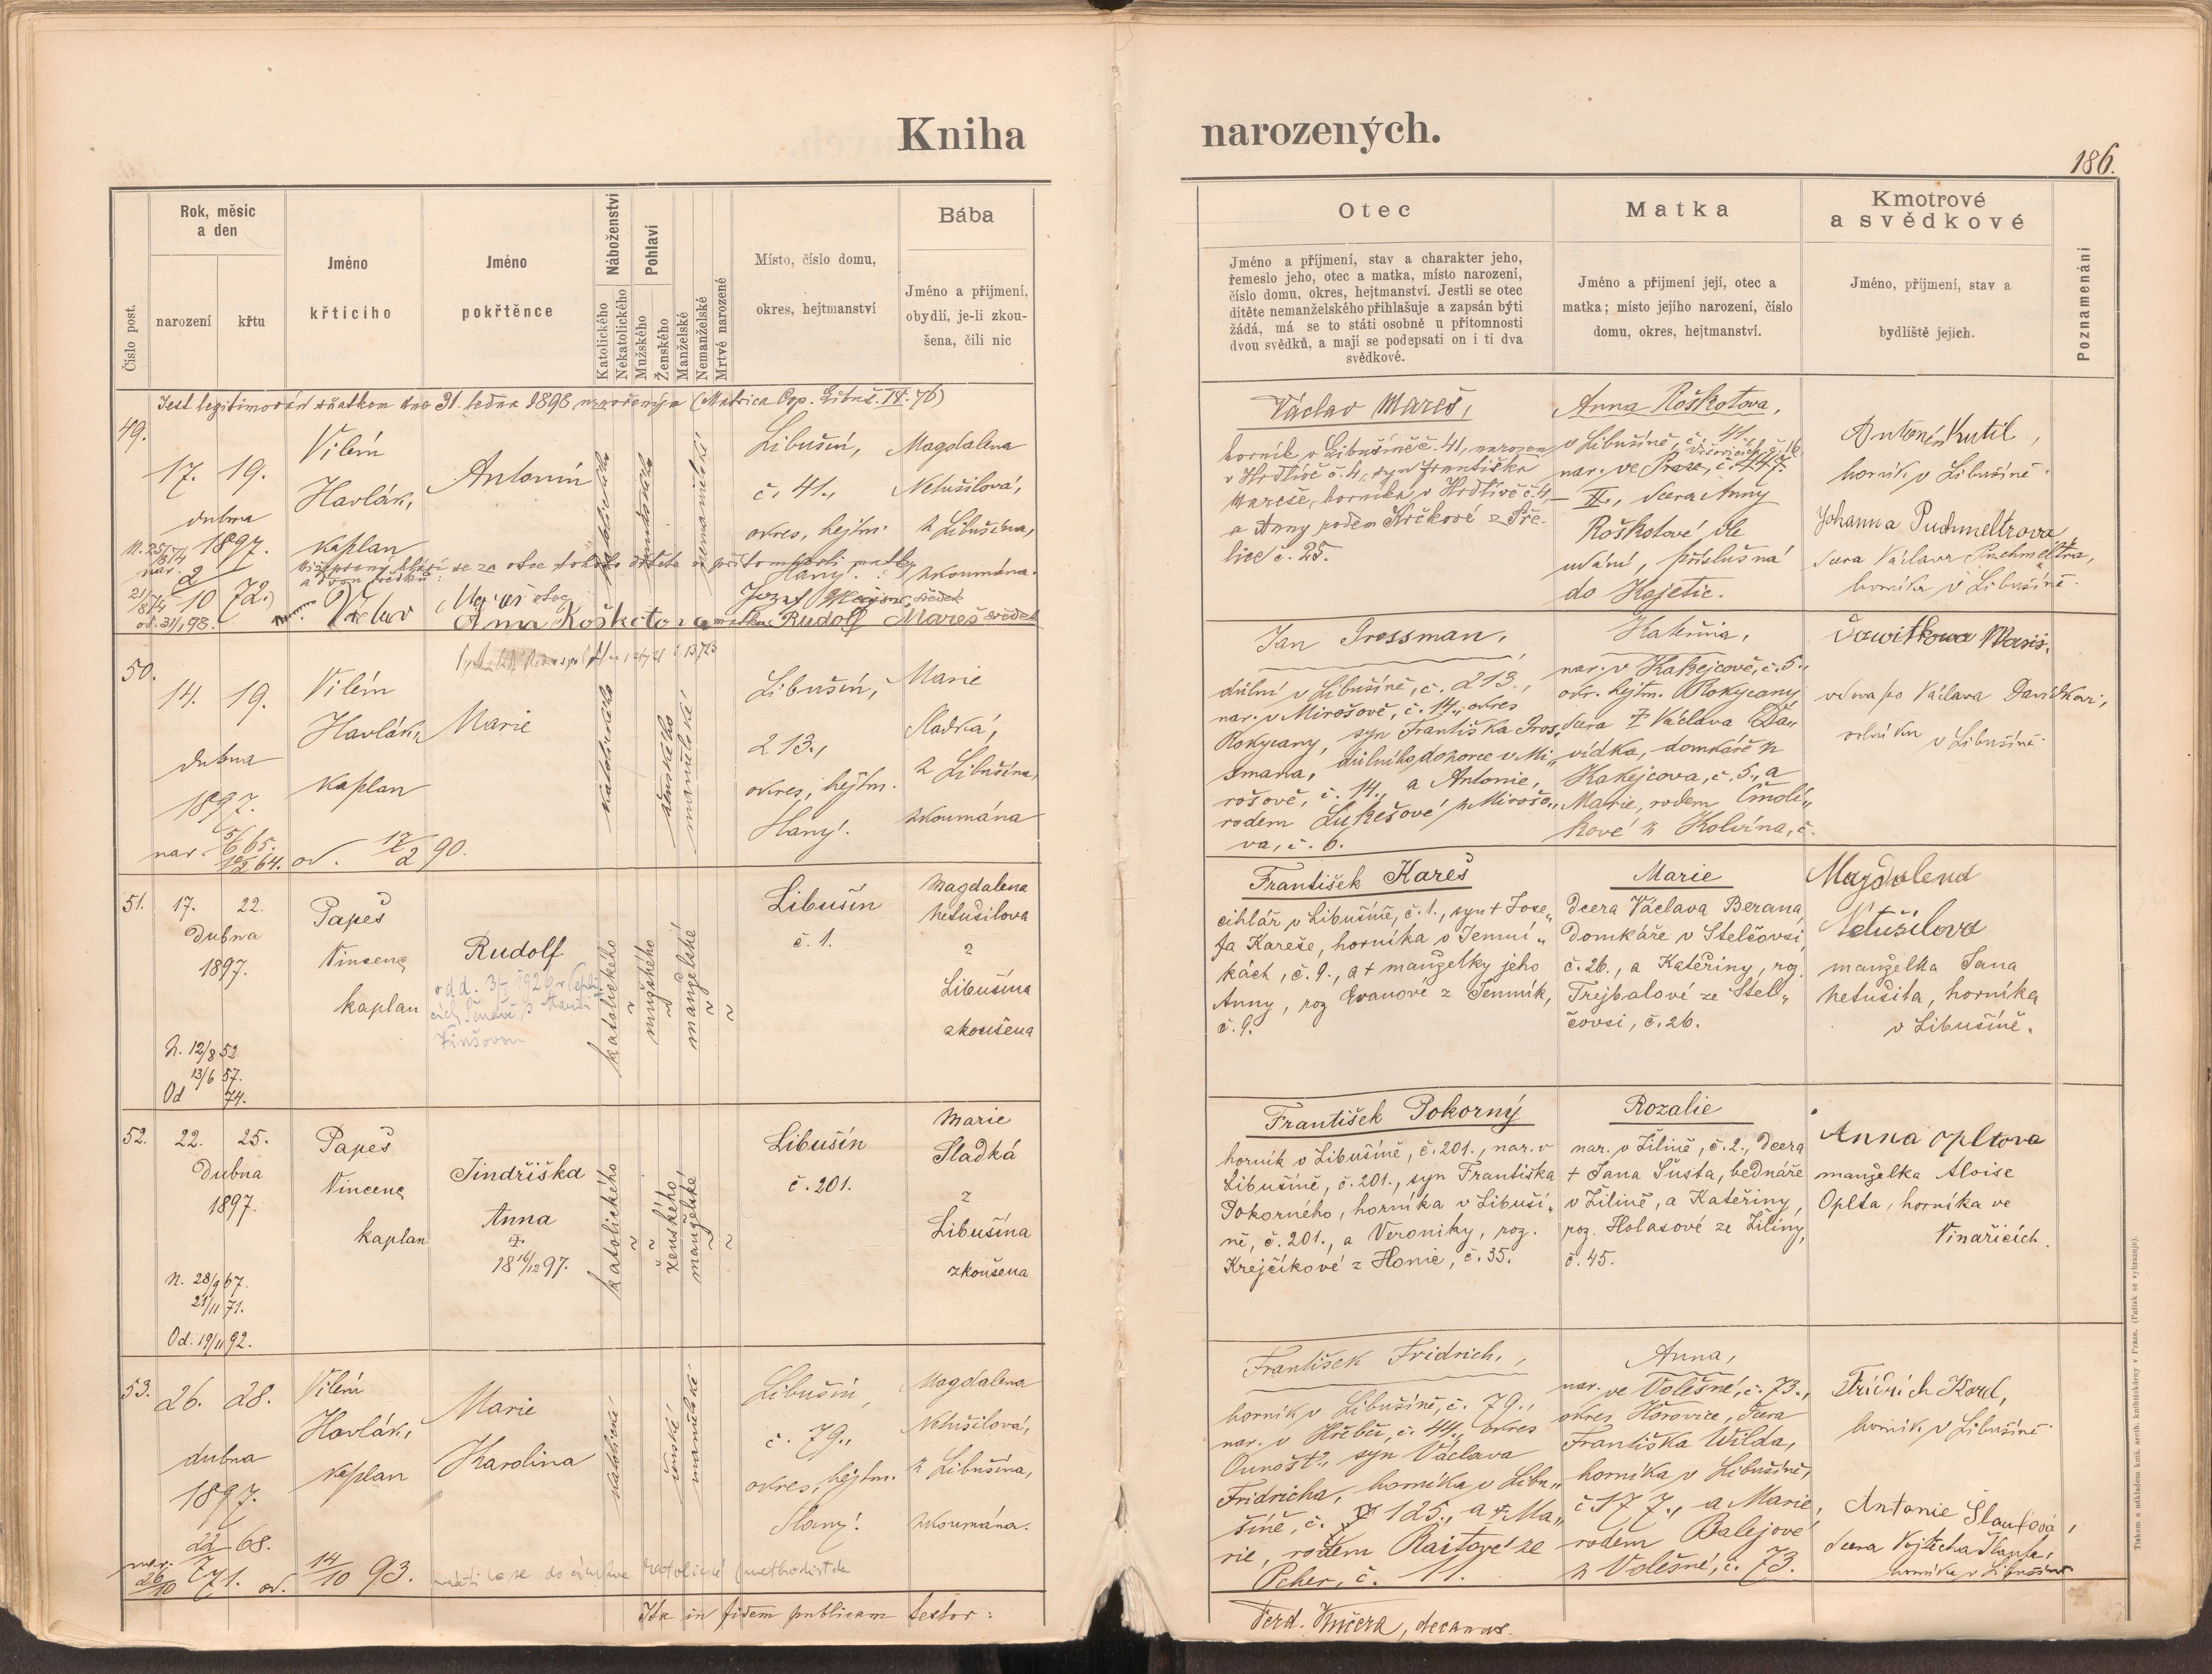 Kniha
narozených.
186.
Číslo post.
Rok, měsíc
a den
narození
křtu
Jméno
křtícího
Jméno
pokřtěnce
Náboženství
Katolického
Nekatolického
Pohlaví
Mužského
Ženského
Manželské
Nemanželské
Mrtvé narozené
Místo, číslo domu,
okres, hejtmanství
Bába
Jméno a přijmení,
obydlí, je-li zkou-
šena, čili nic
Otec
Jméno a příjmení, stav a charakter jeho,
řemeslo jeho, otec a matka, místo narození,
číslo domu, okres, hejtmanství. Jestli se otec
dítěte nemanželského přihlašuje a zapsán býti
žádá, má se to státi osobně u přítomnosti
dvou svědků, a mají se podepsati on i ti dva
svědkové.
Matka
Jméno a přijmení její, otec a
matka; místo jejího narození, číslo
domu, okres, hejtmanství.
Kmotrové
a svědkové
Jméno, příjmení, stav a
bydliště jejich.
Poznamenání
Jest legitimován sňatkem dne 31. ledna 1898 (Matrica Cop. Libuš. IV. 76)
49.
17. 19.
dubna
1897.
Vilém
Havlák,
kaplan
Antonín
katolického
mužského
nemanželské
Libušín,
č. 41.,
okres, hejtm.
Slaný.
Magdalena
Netušilová,
z Libušína,
zkoumána.
se za otce tohoto dítěte v přítomnosti matky
a dvou svědků:
Václav Mareš otec
Anna Roškotova matka Rudolf Mareš svědek
Václav Mareš,
horník v Libušíně č. 41, narozen
v Hrdlívě č. 4, syn Františka
Mareše, horníka v Hrdlívě č. 4
a Anny rodem
lice č. 25.
Anna Roškotova,
v Libušíně, č. 41.
nar. ve Praze,
II., dcera Anny
Roškotové dle
udání, příslušná
do
Antonín Kutil,
horník v Libušíně.
Johanna Puchmeltrova
dcera Václava Puchmeltra,
horníka v Libušíně.
50.
14. 19.
dubna
1897.
nar. 5/6 65.
64. od. 17/2 90.
Vilém
Havlák,
kaplan
Marie
katolického
ženského
manželské
Libušín,
213.,
okres, hejtm.
Slaný.
Marie
Sladká,
z Libušína,
zkoumána
Jan Grossman,
důlní v Libušíně, č. 213.,
nar. v Mirošově, č. 14., okres
Rokycany, syn Františka Gros-
smana, důlního dozorce v Mi-
rošově, č. 14., a Antonie,
rodem Lukešové z Mirošo-
va, č. 6.
Kateřina,
nar. v Kakejcově, č. 5.,
okr. hejtm. Rokycany
dcera † Václava Da-
vídka, domkáře z
Kakejcova, č. 5., a
Marie, rodem Čmolí-
kové z Kolvína, č.
vdova po Václavu
rolníku v Libušíně.
51.
17. 22.
Dubna
1897.
N. 12/8 52
13/6 57.
Od 74.
Papeš
Vincenc
kaplan
Rudolf
katolického
mužského
manželské
Libušín
č. 1.
Magdalena
Netušilova
z
Libušína
zkoušena
František Kareš
cihlář v Libušíně, č. 1., syn † Jose-
fa Kareše, horníka v Jemní-
kách, č. 9., a † manželky jeho
Anny, roz Evanové z Jemník,
č. 9.
Marie
Dcera Václava Berana,
Domkáře v Stelčovsi,
č. 26., a Kateřiny, roz.
Trejbalové ze Stel-
čovsi, č. 26.
Magdalena
Netušilova
manželka Jana
Netušila, horníka
v Libušíně.
52.
22. 25.
Dubna
1897.
N. 28/9 67.
21/11 71.
Od. 19/11 92.
Papeš
Vincenc
kaplan
Jindřiška
Anna
†
18 16/12 97.
katolického
ženského
manželské
Libušín
č. 201.
Marie
Sladká
z
Libušína
zkoušena
František Pokorný
horník v Libušíně, č. 201., nar. v
Libušíně, č. 201., syn Františka
Pokorného, horníka v Libuší-
ně, č. 201., a Veroniky, roz.
Krejčíkové z Honic, č. 35.
Rozalie
nar. v Žilině, č. 2., Dcera
† Jana Šusta, bednáře
v Žilině, a Kateřiny,
roz. Holasové ze Žiliny,
č. 45.
Anna Opltova
manželka Aloise
Oplta, horníka ve
Vinařicích.
53.
26. 28.
dubna
1897.
nar. 22/7 68.
26/10 71. od. 14/10 93.
Vilém
Havlák,
kaplan
Marie
Karolina
ženské
manželské
Libušín,
č. 79.,
okres, hejtm.
Slaný.
Magdalena
Netušilová,
z Libušína,
zkoumána.
František Fridrich,
horník v Libušíně, č. 79.,
nar. v Hřebči, č. 44., okres
Ounošť., syn Václava
Fridricha, horníka v Libu-
šíně, č. 125., a † Ma-
rie, rodem Raitové ze
Pcher, č. 11.
Anna,
nar. ve Volešné, č. 73.,
okres Hořovice, dcera
Františka Wilda,
horníka v Libušíně,
č 177., a Marie,
rodem Balejové
z Volešné, č. 73.
Fridrich Karel,
horník v Libušíně
Antonie Šlaufová,
dcera Vojtěcha Šlaufa,
horníka v Libušíně
Ita in fidem publicam testor:
Ferd. Kučera, decanus.
Tiskem a nákladem kníž. arcib. knihtiskárny v Praze. (Patisk se vyhrazuje).